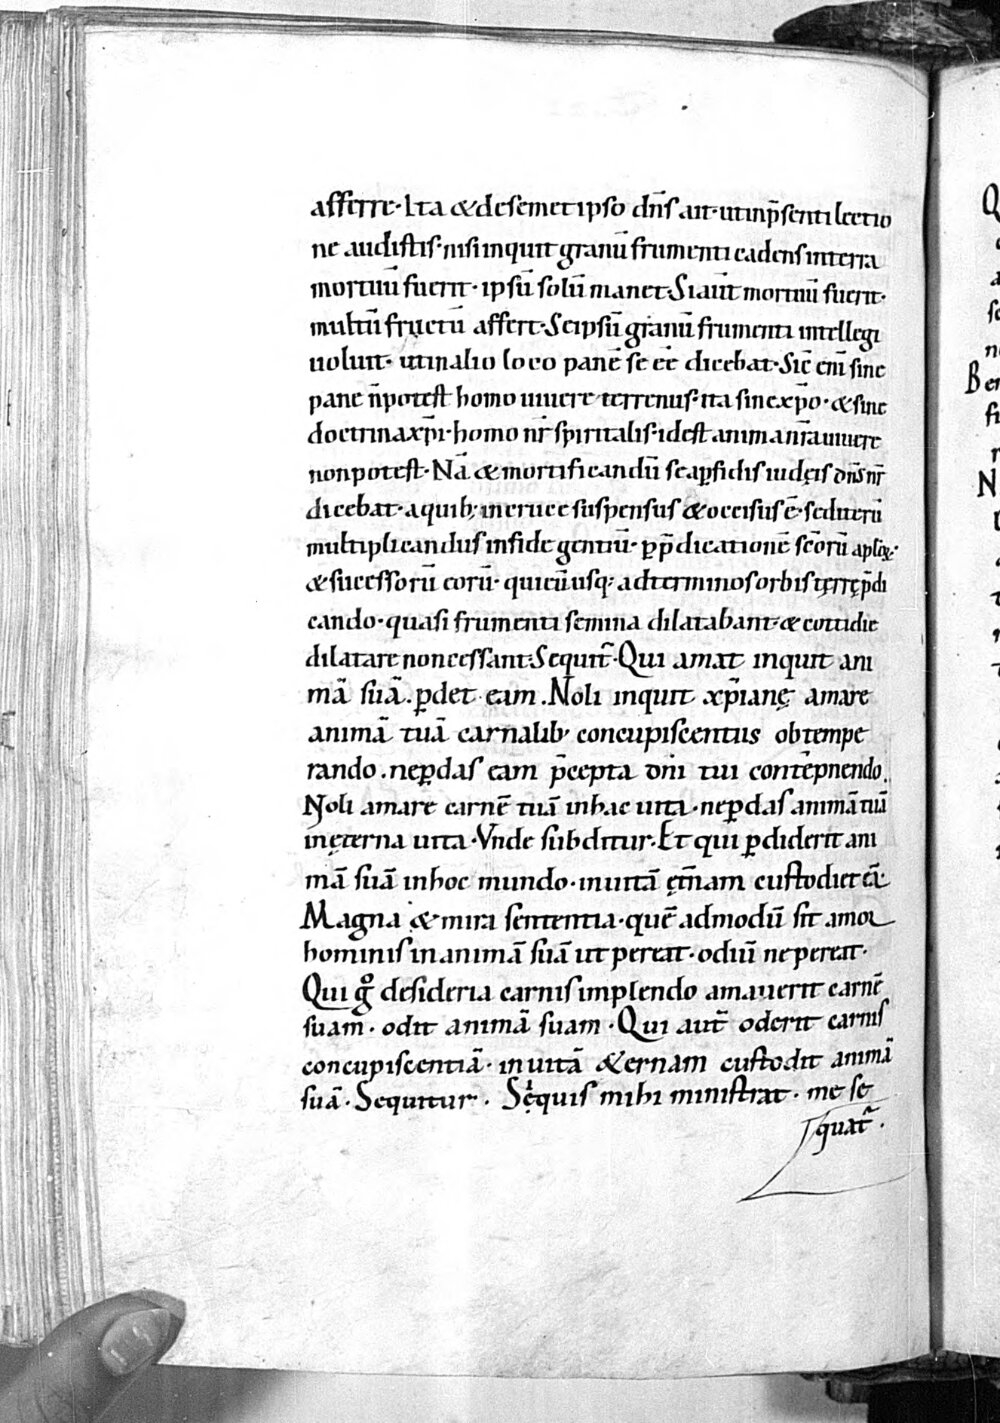 afferre· Ita & desemet ipso dn̄s ait· ut inp̄senti lectio
ne audistis· nisi inquit granū frumenti cadens interra
mortuū fuerit· ipsū solū manet· Si aūt mortuū fuerit·
multū fructū affert· Seipsū granū frumenti intellegi
uoluit· ut inalio loco panē se eē dicebat· Sic̄ enī sine
pane n̄potest homo uiuere terrenus· ita sinexp̄o· & sine
doctrinaxp̄i· homo nr̄ spiritalis· idest animanr̄a uiuere
nonpotest· Nā & mortificandū se apſidis iudęis dn̄s nr̄
dicebat· aquib; incruce suspensus & occisus ē· sed iterū
multiplicandus infide gentiū· ꝑ p̄dicationē sc̄orū aplōꝝ·
& sucessorū eorū· quicūusq; adterminos orbis tęrrę p̄di
cando· quasi frumenti semina dilatabant· & cottidie
dilatare noncessant· Sequit̄· Qui amat inquit ani
mā suā· ꝑdet eam. Noli inquit xp̄ianę amare
animā tuā carnalib; concupiscentiis obtempe
rando. neꝑdas eam p̄cepta dn̄i tui contēpnendo.
Noli amare carnē tuā inhac uita· neꝑdas animā tuā
inęterna uita· Vnde subditur· Et qui ꝑdiderit ani
mā suā inhoc mundo· inuitā ęt̄nam custodiet eā·
Magna & mira sententia· quē admodū sit amor
hominis inanimā suā ut pereat· odiū ne pereat·
Qui gͦ desideria carnis implendo amauerit carnē
suam· odit animā suam· Qui aut̄ oderit carnis
concupiscentiā· inuitā &ernam custodit animā
suā· Sequitur· Sęquis mihi ministrat· me se
quat̄·